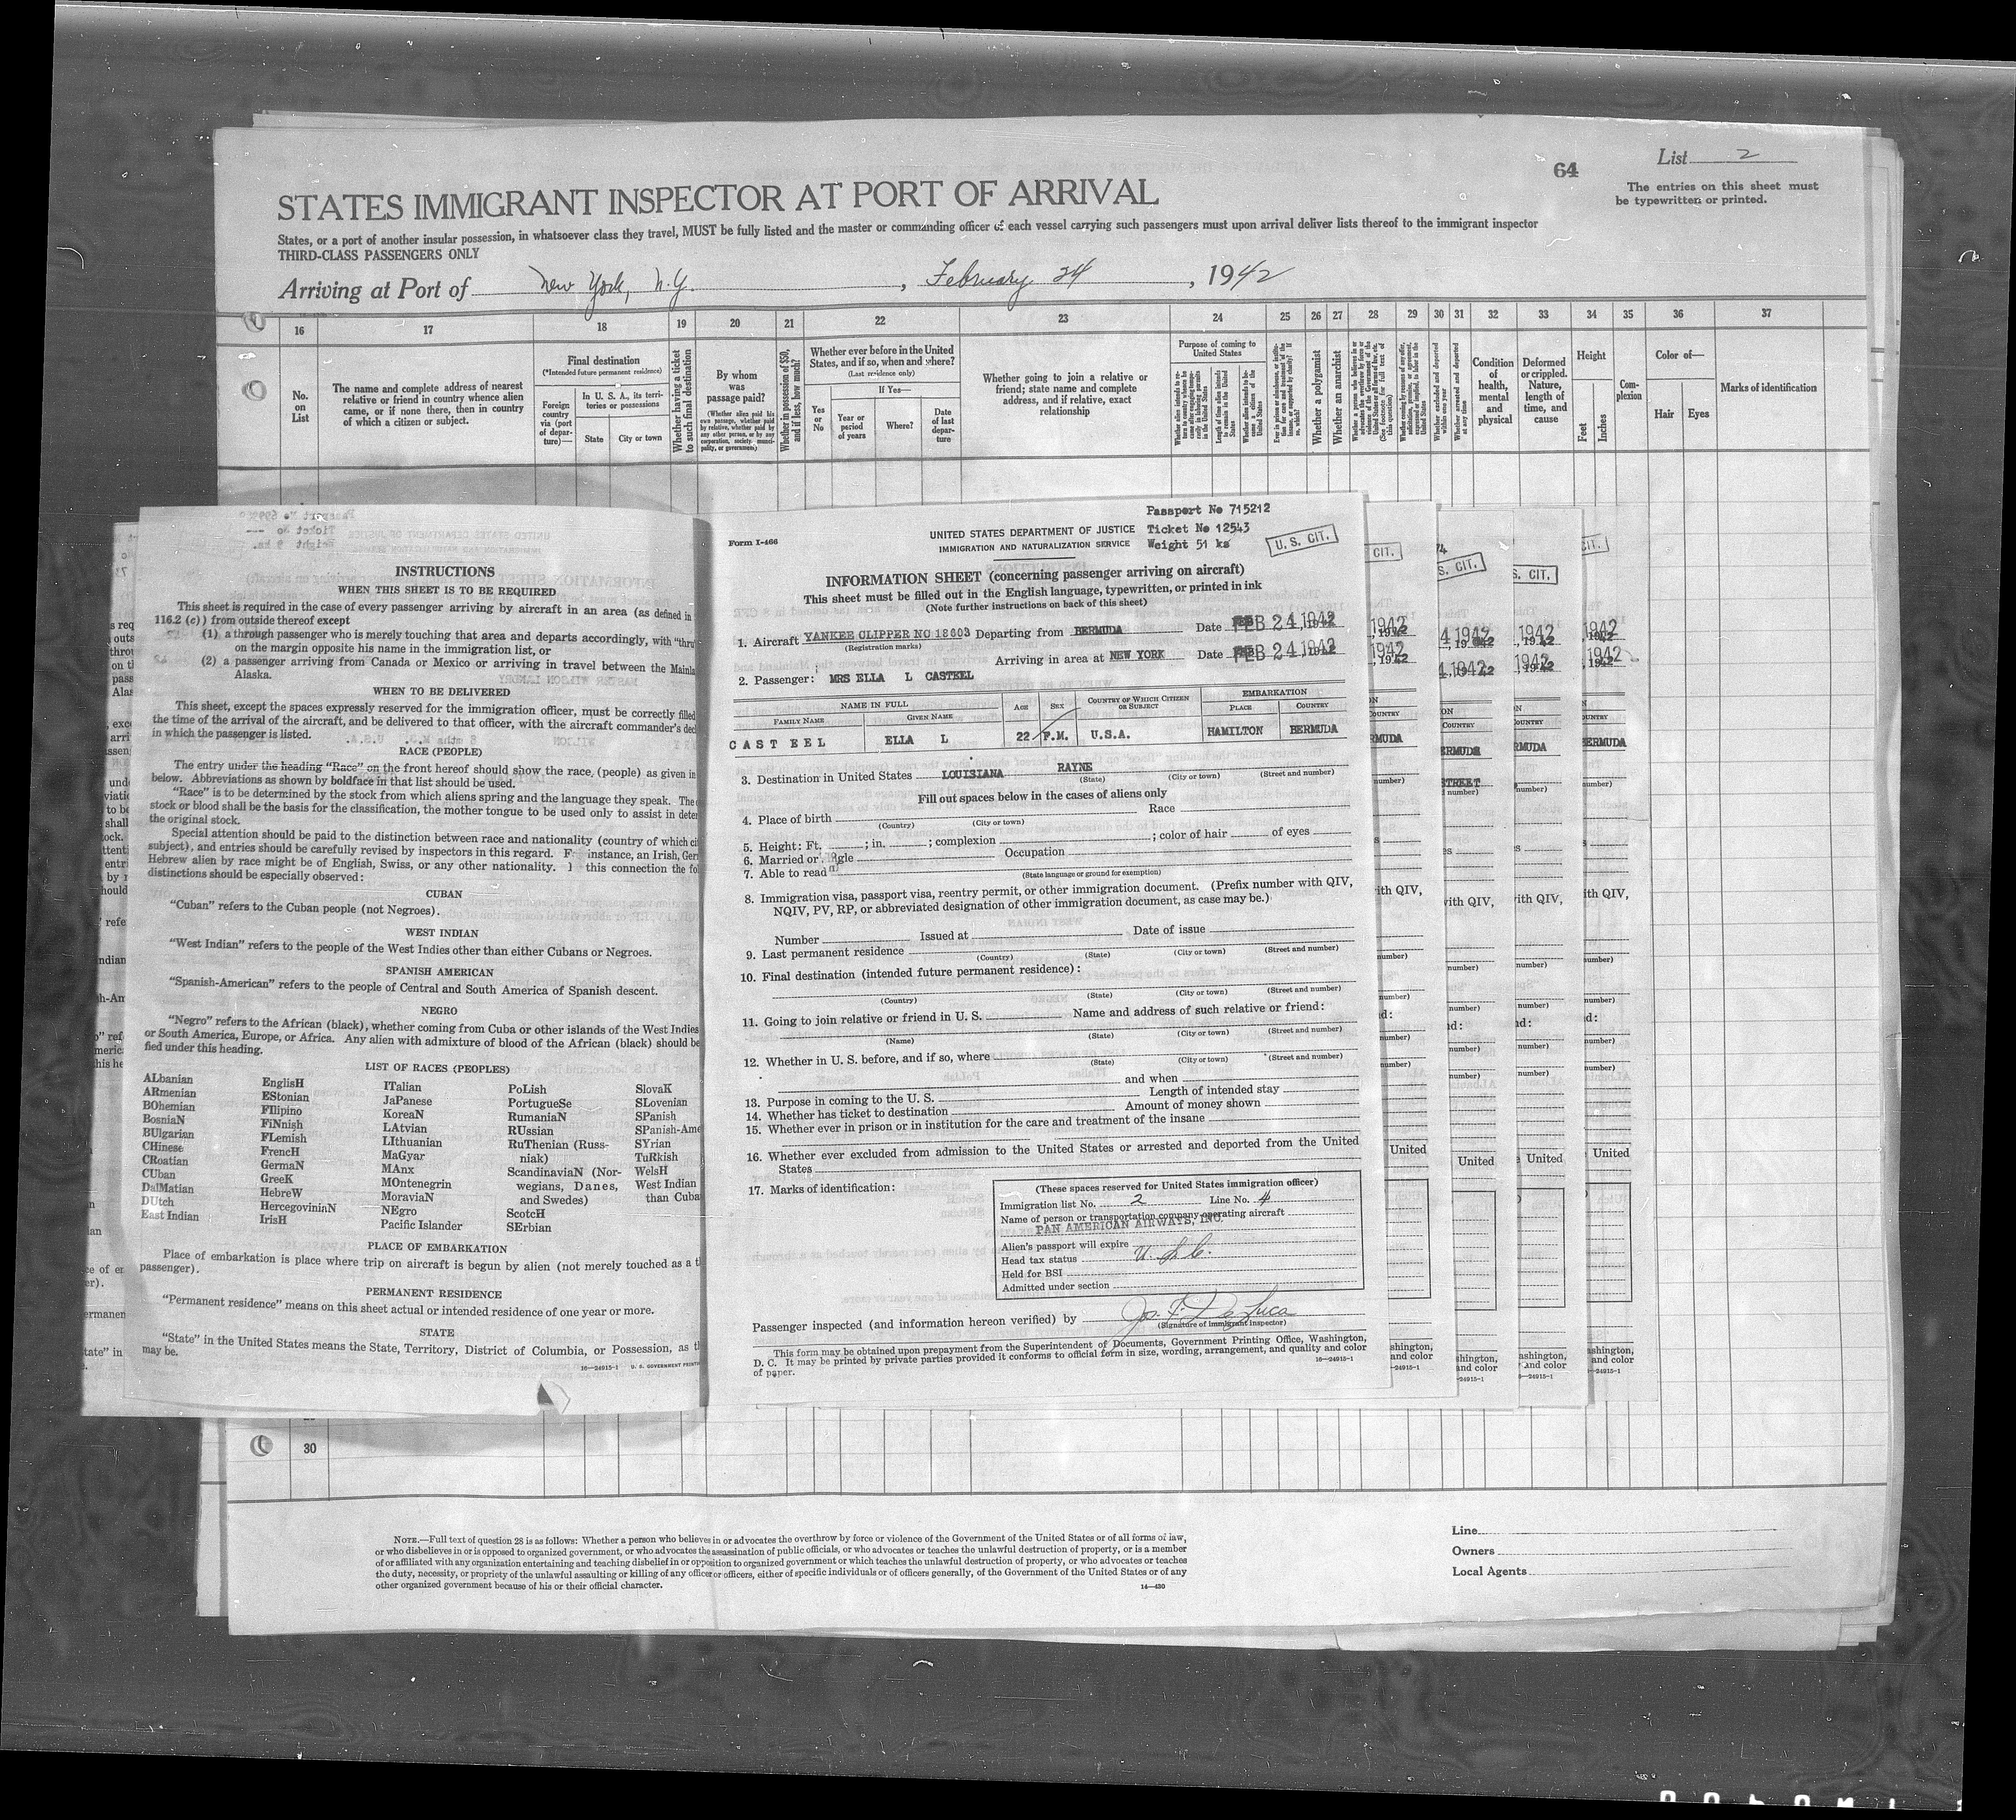 64
List 2
The entries on this sheet must
be typewritten or printed.
STATES IMMIGRANT INSPECTOR AT PORT OF ARRIVAL
States, or a port of another insular possession, in whatsoever class they travel, MUST be fully listed and the master or commanding officer of each vessel carrying such passengers must upon arrival deliver lists thereof to the immigrant inspector
THIRD-CLASS PASSENGERS ONLY
Arriving at Port of New York, N.Y., February 24, 1942
16 17 18 19 20 21 22 23 24 25 26 27 28 29 30 31 32 33 34 35 36 37
No. on List
The name and complete address of nearest
relative or friend in country whence alien
came, or if none there, then in country
of which a citizen or subject.
Final destination
(*Intended future permanent residence)
Foreign country via (port of departure)—
In U. S. A., its territories or possessions
State
City or town
Whether having a ticket to such final destination
By whom was passage paid?
(Whether alien paid his own passage, whether paid by relative, whether paid by any other person, or by any corporation, society, municipality, or government)
Whether in possession of $50, and if less, how much?
Whether ever before in the United
States, and if so, when and where?
(Last residence only)
If Yes—
Yes or No
Year or period of years
Where?
Date of last departure
Whether going to join a relative or
friend; state name and complete
address, and if relative, exact
relationship
Purpose of coming to
United States
Whether a polygamist
Whether an anarchist
Condition of health, mental and physical
Deformed or crippled. Nature, length of time, and cause
Height
Feet
Inches
Complexion
Color of—
Hair
Eyes
Marks of identification
INSTRUCTIONS
WHEN THIS SHEET IS TO BE REQUIRED
This sheet is required in the case of every passenger arriving by aircraft in an area (as defined in
116.2 (c) ) from outside thereof except
(1) a through passenger who is merely touching that area and departs accordingly, with "thru"
on the margin opposite his name in the immigration list, or
(2) a passenger arriving from Canada or Mexico or arriving in travel between the Mainla
Alaska.
WHEN TO BE DELIVERED
This sheet, except the spaces expressly reserved for the immigration officer, must be correctly filled
the time of the arrival of the aircraft, and be delivered to that officer, with the aircraft commander's decl
in which the passenger is listed.
RACE (PEOPLE)
The entry under the heading "Race" on the front hereof should show the race, (people) as given in
below. Abbreviations as shown by boldface in that list should be used.
"Race" is to be determined by the stock from which aliens spring and the language they speak. The
stock or blood shall be the basis for the classification, the mother tongue to be used only to assist in deter
the original stock.
Special attention should be paid to the distinction between race and nationality (country of which cit
subject), and entries should be carefully revised by inspectors in this regard. F instance, an Irish, Ger
Hebrew alien by race might be of English, Swiss, or any other nationality. I this connection the fo
distinctions should be especially observed:
CUBAN
"Cuban" refers to the Cuban people (not Negroes).
WEST INDIAN
"West Indian" refers to the people of the West Indies other than either Cubans or Negroes.
SPANISH AMERICAN
"Spanish-American" refers to the people of Central and South America of Spanish descent.
NEGRO
"Negro" refers to the African (black), whether coming from Cuba or other islands of the West Indies
or South America, Europe, or Africa. Any alien with admixture of blood of the African (black) should be
fied under this heading.
LIST OF RACES (PEOPLES)
ALbanian
ARmenian
BOhemian
BosniaN
BUlgarian
CHinese
CRoatian
CUban
DalMatian
DUtch
East Indian
EnglisH
EStonian
FIlipino
FiNnish
FLemish
FrencH
GermaN
GreeK
HebreW
HercegoviniaN
IrisH
ITalian
JaPanese
KoreaN
LAtvian
LIthuanian
MaGyar
MAnx
MOntenegrin
MoraviaN
NEgro
Pacific Islander
PoLish
PortugueSe
RumaniaN
RUssian
RuThenian (Russ-
niak)
ScandinaviaN (Nor-
wegians, Danes,
and Swedes)
ScotcH
SErbian
SlovaK
SLovenian
SPanish
SPanish-Ame
SYrian
TuRkish
WelsH
West Indian
than Cuba
PLACE OF EMBARKATION
Place of embarkation is place where trip on aircraft is begun by alien (not merely touched as a t
passenger).
PERMANENT RESIDENCE
"Permanent residence" means on this sheet actual or intended residence of one year or more.
STATE
"State" in the United States means the State, Territory, District of Columbia, or Possession, as t
may be.
16—24915-1 U. S. GOVERNMENT PRINT
Passport No 715212
Form I-466
UNITED STATES DEPARTMENT OF JUSTICE Ticket No 12543
IMMIGRATION AND NATURALIZATION SERVICE Weight 51 ks
U. S. CIT.
INFORMATION SHEET (concerning passenger arriving on aircraft)
This sheet must be filled out in the English language, typewritten, or printed in ink
(Note further instructions on back of this sheet)
1. Aircraft YANKEE CLIPPER NC 18603 Departing from BERMUDA Date FEB 24 1942
(Registration marks)
Arriving in area at NEW YORK Date FEB 24 1942
2. Passenger: MRS ELLA L CASTEEL
NAME IN FULL
FAMILY NAME GIVEN NAME AGE SEX COUNTRY OF WHICH CITIZEN OR SUBJECT
EMBARKATION
PLACE COUNTRY
CASTEEL ELLA L 22 F.M. U.S.A. HAMILTON BERMUDA
3. Destination in United States LOUISIANA RAYNE
(State) (City or town) (Street and number)
Fill out spaces below in the cases of aliens only
4. Place of birth Race
(Country) (City or town)
5. Height: Ft. ; in. ; complexion ; color of hair of eyes
6. Married or gle Occupation
7. Able to read
(State language or ground for exemption)
8. Immigration visa, passport visa, reentry permit, or other immigration document. (Prefix number with QIV,
NQIV, PV, RP, or abbreviated designation of other immigration document, as case may be.)
Number Issued at Date of issue
9. Last permanent residence
(Country) (State) (City or town) (Street and number)
10. Final destination (intended future permanent residence) :
(Country) (State) (City or town) (Street and number)
11. Going to join relative or friend in U. S. Name and address of such relative or friend:
(Name) (State) (City or town) (Street and number)
12. Whether in U. S. before, and if so, where
(State) (City or town) (Street and number)
and when
13. Purpose in coming to the U. S. Length of intended stay
14. Whether has ticket to destination Amount of money shown
15. Whether ever in prison or in institution for the care and treatment of the insane
16. Whether ever excluded from admission to the United States or arrested and deported from the United
States
17. Marks of identification:
(These spaces reserved for United States immigration officer)
Immigration list No. 2 Line No. 4
Name of person or transportation company operating aircraft
PAN AMERICAN AIRWAYS, INC.
Alien's passport will expire
Head tax status U. S. C.
Held for BSI
Admitted under section
Passenger inspected (and information hereon verified) by Jos. F. De Luca
(Signature of Immigrant Inspector)
This form may be obtained upon prepayment from the Superintendent of Documents, Government Printing Office, Washington,
D. C. It may be printed by private parties provided it conforms to official form in size, wording, arrangement, and quality and color
of paper.
16—24915-1
30
NOTE.—Full text of question 28 is as follows: Whether a person who believes in or advocates the overthrow by force or violence of the Government of the United States or of all forms of law,
or who disbelieves in or is opposed to organized government, or who advocates the assassination of public officials, or who advocates or teaches the unlawful destruction of property, or is a member
of or affiliated with any organization entertaining and teaching disbelief in or opposition to organized government or which teaches the unlawful destruction of property, or who advocates or teaches
the duty, necessity, or propriety of the unlawful assaulting or killing of any officer or officers, either of specific individuals or of officers generally, of the Government of the United States or of any
other organized government because of his or their official character.
14—430
Line
Owners
Local Agents